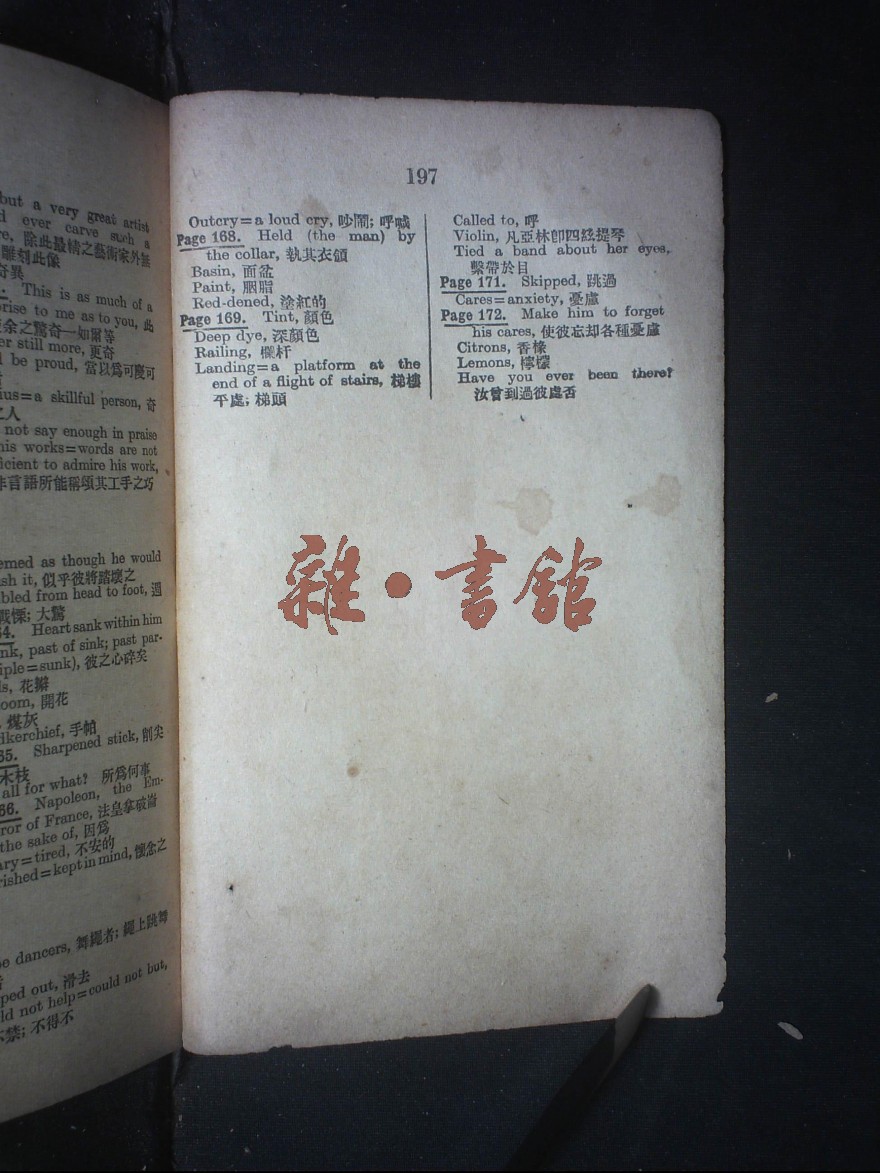 but a very great artist
ever carve such a
re, 除此最精之藝術家外無
雕刻此像
奇異
This is as much of a
prise to me as to you, 此
余之驚奇一如爾等
er still more, 更奇
be proud, 當以爲可慶可
ius=a skillful person, 奇
之人
not say enough in praise
his works=words are not
ficient to admire his work,
非言語所能稱頌其工手之巧
emed as though he would
sh it, 似乎彼將踏壞之
bled from head to foot, 週
戰慄; 大驚
64. Heart sank within him
nk, past of sink; past par-
iple=sunk), 彼之心碎矣
ls, 花瓣
oom, 開花
煤灰
dkerchief, 手帕
65. Sharpened stick, 削尖
木枝
all for what? 所爲何事
66. Napoleon, the Em-
ror of France, 法皇拿破崙
the sake of, 因爲
ary=tired, 不安的
rished=kept in mind, 懷念之
pe dancers, 舞繩者; 繩上跳舞
者
ped out, 滑去
ld not help=could not but,
不禁; 不得不
197
Outcry=a loud cry, 吵鬧; 呼喊
Page 168. Held (the man) by
the collar, 執其衣領
Basin, 面盆
Paint, 胭脂
Red-dened, 塗紅的
Page 169. Tint, 顏色
Deep dye, 深顏色
Railing, 欄杆
Landing=a platform at the
end of a flight of stairs, 梯樓
平處; 梯頭
Called to, 呼
Violin, 凡亞林卽四絃提琴
Tied a band about her eyes,
繫帶於目
Page 171. Skipped, 跳過
Cares=anxiety, 憂慮
Page 172. Make him to forget
his cares, 使彼忘却各種憂慮
Citrons, 香櫞
Lemons, 檸檬
Have you ever been there?
汝曾到過彼處否
雜·書館